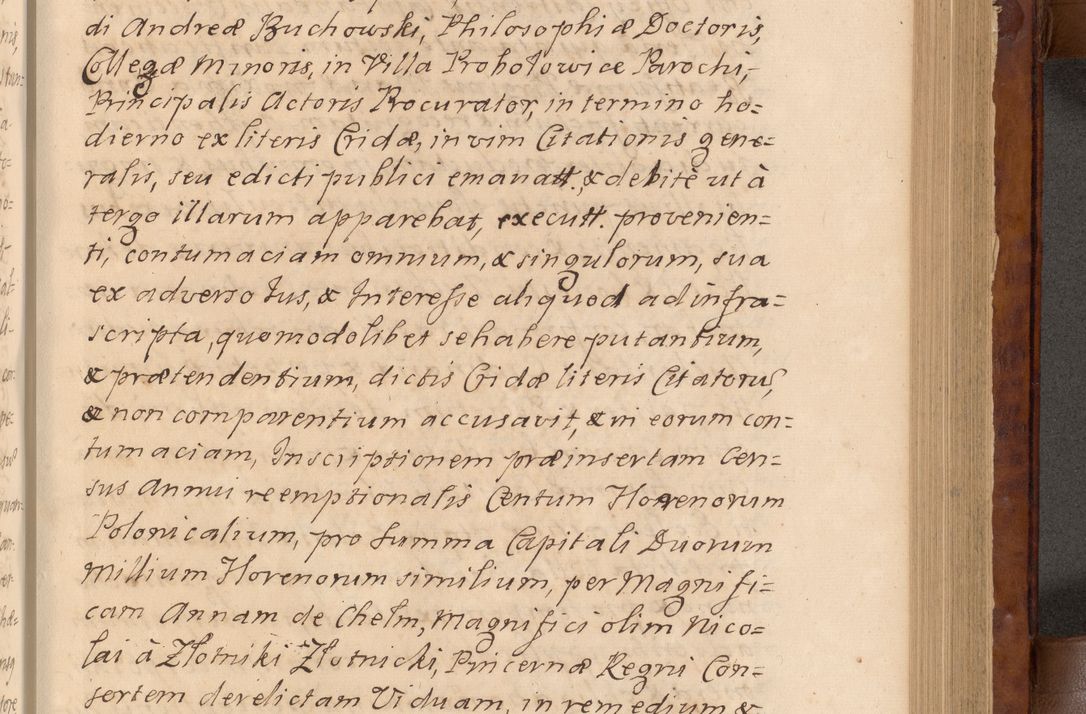 di Andreæ Buchowski, Philosophiæ Doctoris,
Collegæ Minoris, in Villa Probołowice Parochi,
Principalis Actoris Procurator, in termino ho=
dierno ex literis Cridæ, in vim Citationis gene=
ralis, seu edicti publici emanatt. & debitè ut à
tergo illarum apparebat, executt. provenien=
ti, contumaciam omnium, & singulorum, sua
ex adverso Jus, & Interesse aliquod ad infra=
scripta, quomodolibet se habere putantium,
& prætendentium, dictis Cridæ literis Citatorũ,
& non comparentium accusavit, & in eorum con=
tumaciam, Inscriptionem præinsertam Cen=
sus Annui reemptionalis Centum Florenorum
Polonicalium, pro summa Capitali Duorum
Millium Florenorum similium, per Magnifi=
cam Annam de Chełm, Magnifici olim Nico=
lai à Złotniki Złotnicki, Pincernæ Regni Con=
sortem derelictam Viduam, in remedium &